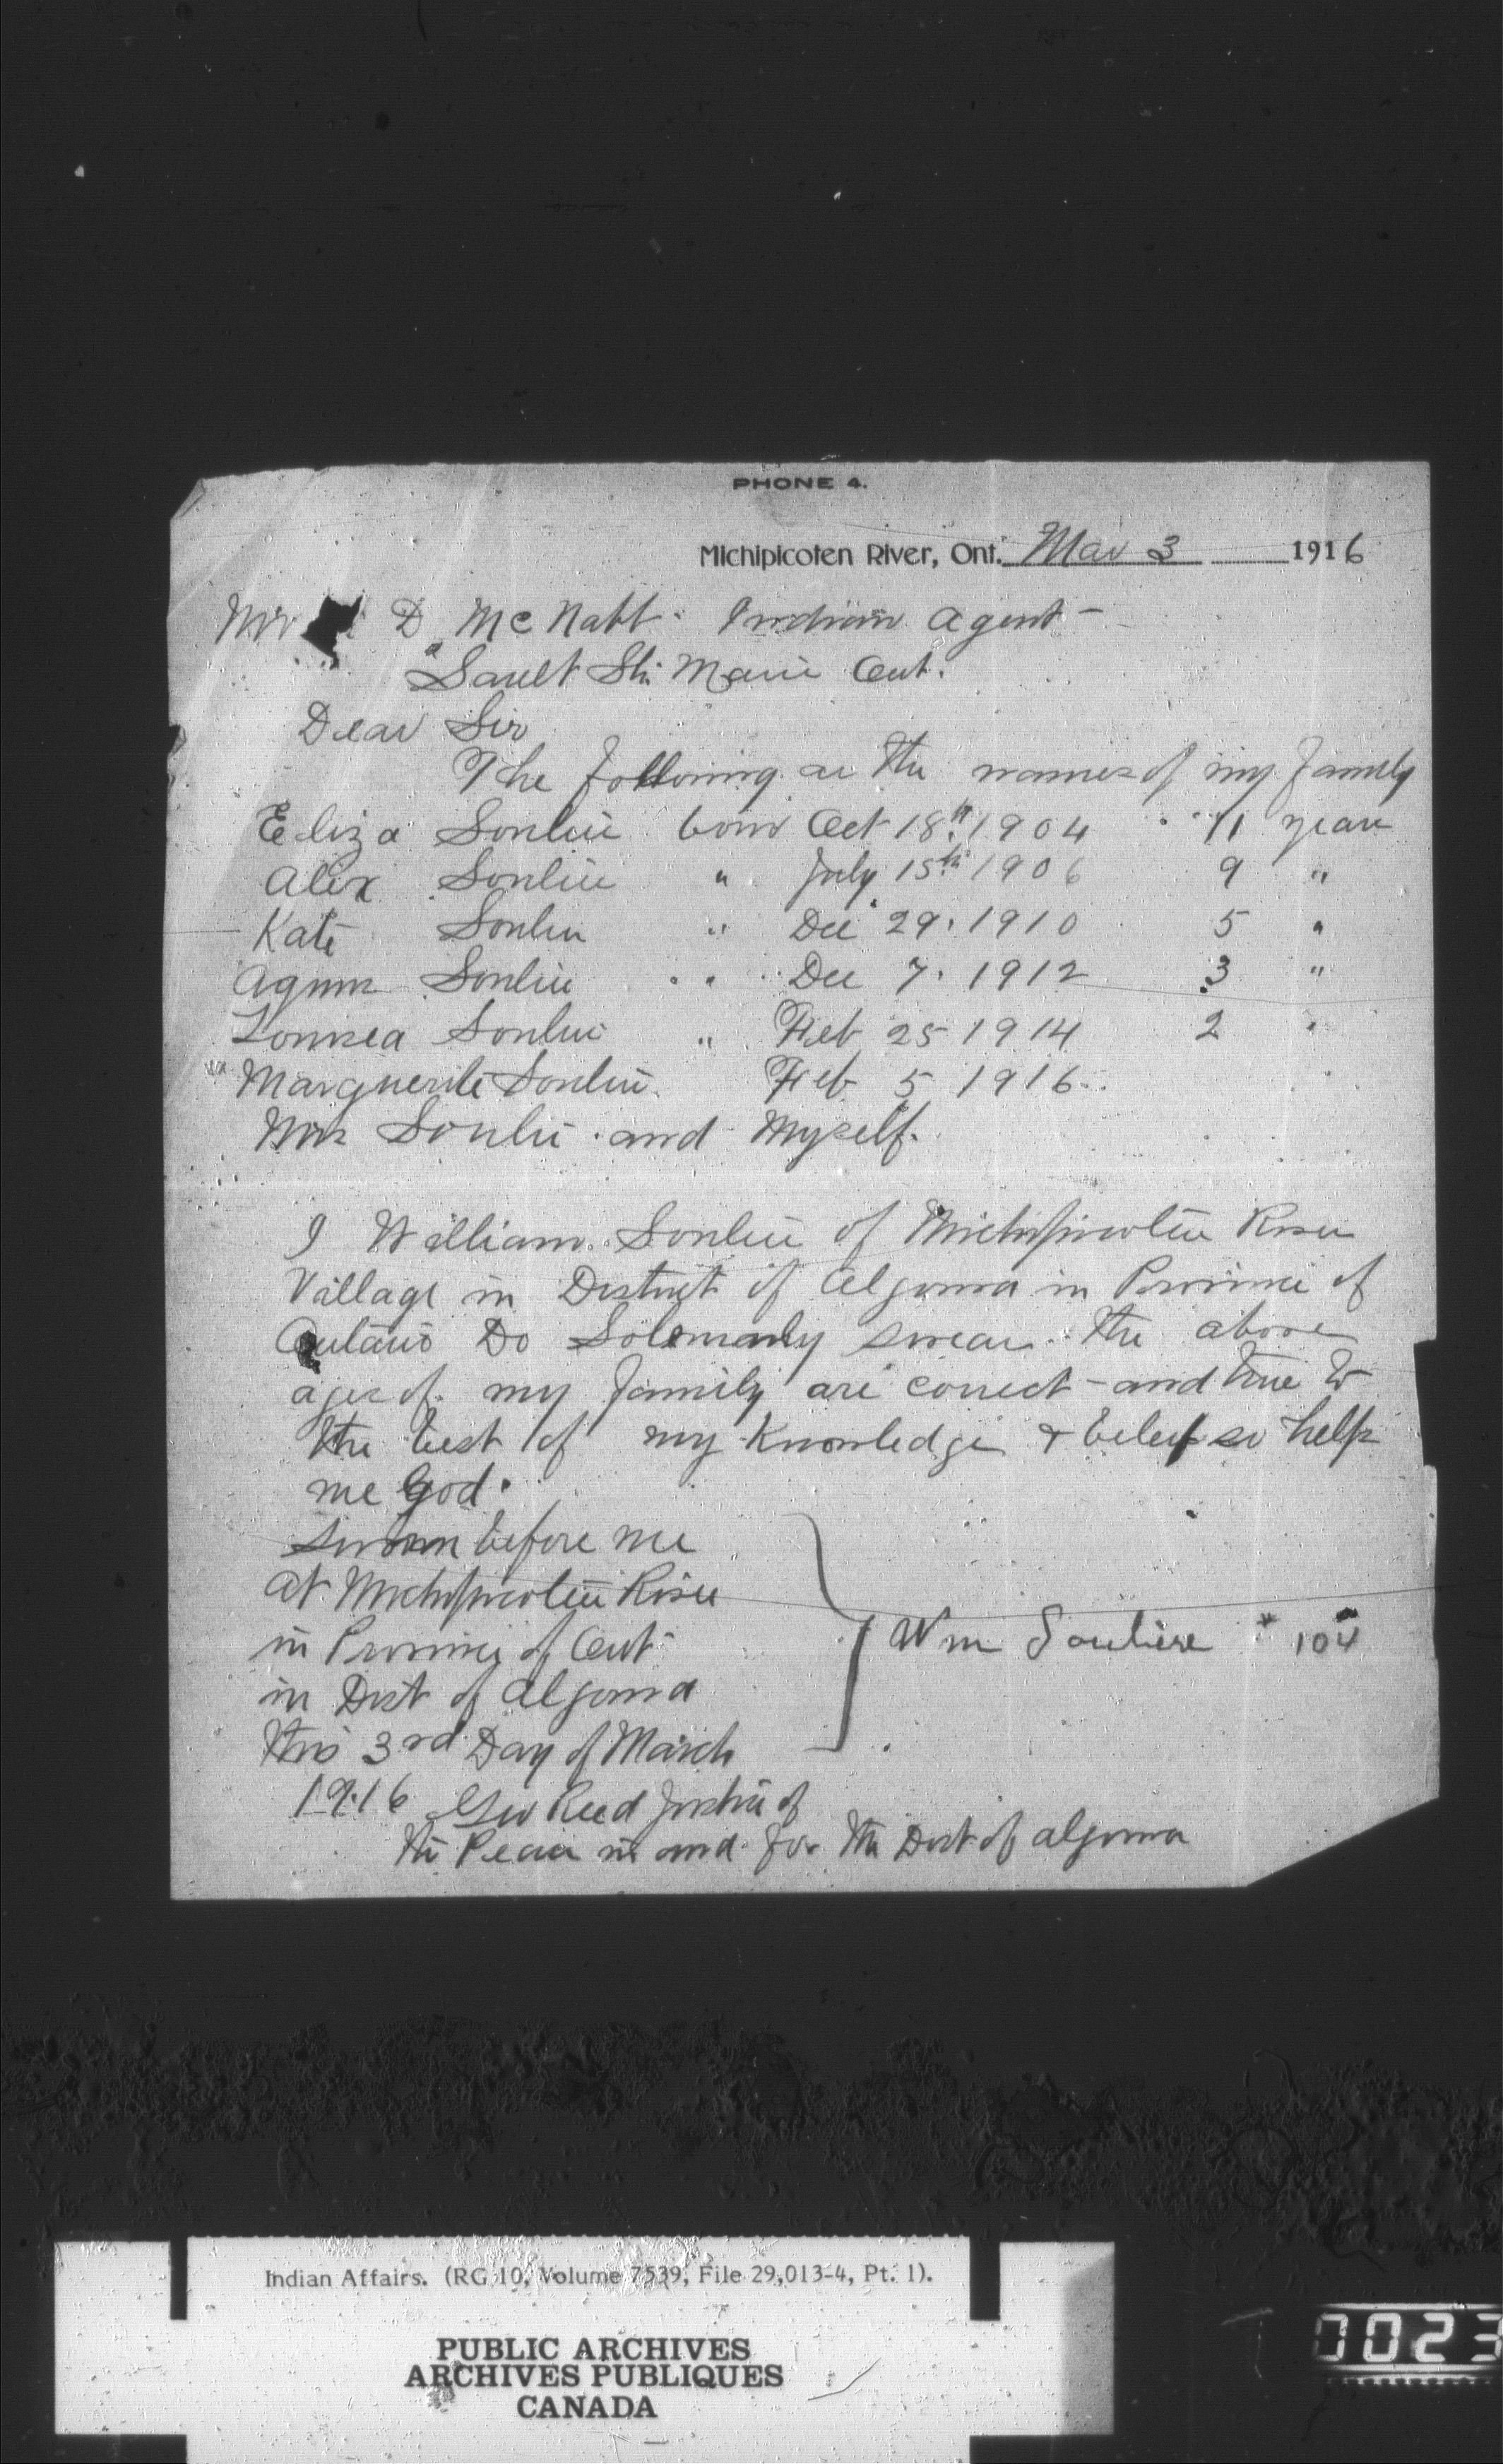 PHONE 4.
Michipicoten River, Ont. Mar 3 1916
Mr D McNabb Indian Agent -
Sault Ste Marie Ont.
Dear Sir
The following are the names of my family
Eliza Soulier born Oct 18th 1904 11 years
Alex Soulier " July 15th 1906 9 "
Kate Soulier " Dec 29. 1910 5 "
Agnes Soulier " Dec 7. 1912 3 "
Louisea Soulier " Feb 25 1914 2 "
Marguerite Soulier. Feb 5 1916
Mrs Soulier and Myself.
I William Soulier of Michipicoten River
Village in District of Algoma in Province of
Ontario Do Solemanly swear the above
ages of my family are correct - and true to
the best of my Knowledge & belief so help
me God.
Sworn before me
at Michipicoten River
in Province of Ont
in Dist of Algoma
this 3rd Day of March
1916 Geo Reed Justice of
the Peace in and for the Dist of Algoma
Wm Souliere * 104
Indian Affairs. (RG 10, Volume 7539, File 29,013-4, Pt. 1).
PUBLIC ARCHIVES
ARCHIVES PUBLIQUES
CANADA
0023